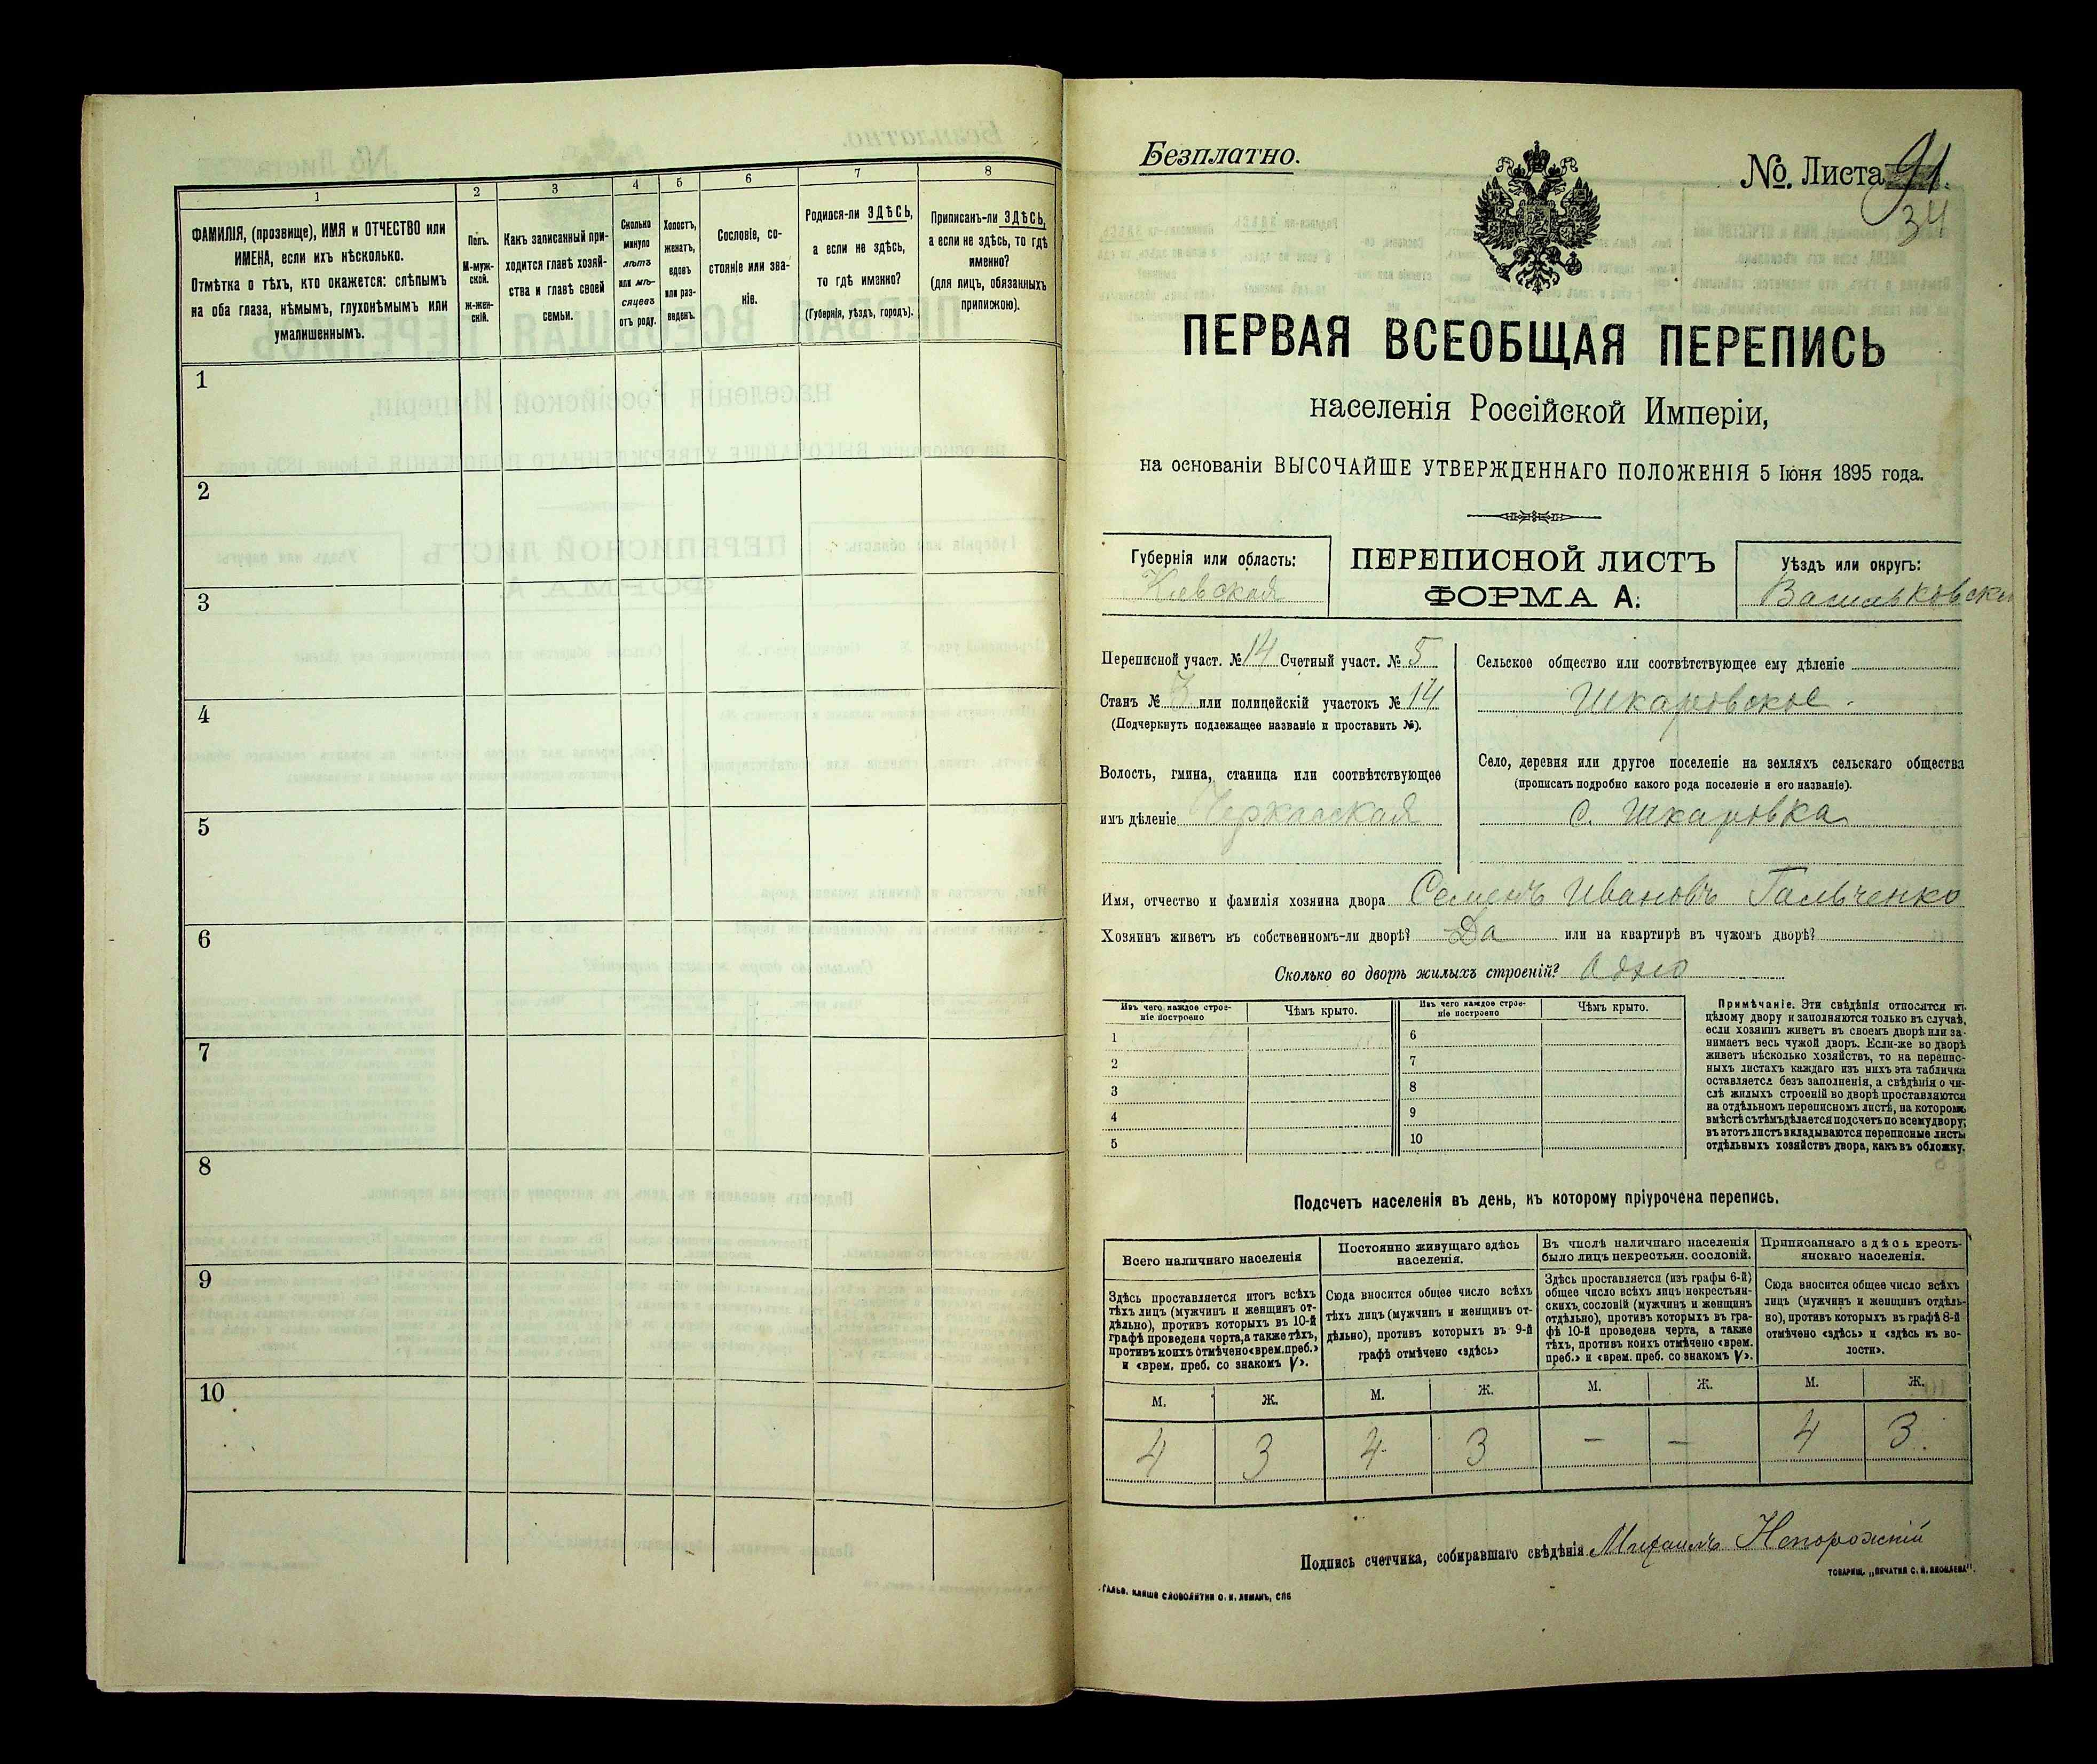 1
2
3
4
5
6
7
8
ФАМИЛІЯ, (прозвище), ИМЯ и ОТЧЕСТВО или
ИМЕНА, если ихъ нѣсколько.
Отмѣтка о тѣхъ, кто окажется: слѣпымъ
на оба глаза, нѣмымъ, глухонѣмымъ или
умалишеннымъ.
Полъ.
М-муж-
ской.
Ж-жен-
скій.
Какъ записанный при-
ходится главѣ хозяй-
ства и главѣ своей
семьи.
Сколько
минуло
лѣтъ
или мѣ-
сяцевъ
отъ роду.
Холостъ,
женатъ,
вдовъ
или раз-
веденъ.
Сословіе, со-
стояніе или зва-
ніе.
Родился-ли ЗДѢСЬ,
а если не здѣсь,
то гдѣ именно?
(Губернія, уѣздъ, городъ).
Приписанъ-ли ЗДѢСЬ,
а если не здѣсь, то гдѣ
именно?
(для лицъ, обязанныхъ
припискою).
1
2
3
4
5
6
7
8
9
10
Безплатно.
№. Листа 91.
34
ПЕРВАЯ ВСЕОБЩАЯ ПЕРЕПИСЬ
населенія Россійской Имперіи,
на основаніи ВЫСОЧАЙШЕ УТВЕРЖДЕННАГО ПОЛОЖЕНІЯ 5 Іюня 1895 года.
Губернія или область:
Кіевская
ПЕРЕПИСНОЙ ЛИСТЪ
ФОРМА А.
Уѣздъ или округъ:
Васильковскі
Переписной участ. № 14 Счетный участ. № 5
Станъ № 3 или полицейскій участокъ № 14
(Подчеркнуть подлежащее названіе и проставить №).
Волость, гмина, станица или соотвѣтствующее
имъ дѣленіе Черкасская
Сельское общество или соотвѣтствующее ему дѣленіе
Шкаровское
Село, деревня или другое поселеніе на земляхъ сельскаго общества
(прописать подробно какого рода поселеніе и его названіе).
с. Шкаровка
Имя, отчество и фамилія хозяина двора Семенъ Ивановъ Гальченко
Хозяинъ живетъ въ собственномъ-ли дворѣ? Да или на квартирѣ въ чужомъ дворѣ?
Сколько во дворѣ жилыхъ строеній? Одно
Изъ чего каждое строе-
ніе построено
Чѣмъ крыто.
Изъ чего каждое строе-
ніе построено
Чѣмъ крыто.
1
2
3
4
5
6
7
8
9
10
Примѣчаніе. Эти свѣдѣнія относятся къ
цѣлому двору и заполняются только въ случаѣ,
если хозяинъ живетъ въ своемъ дворѣ или за-
нимаетъ весь чужой дворъ. Если-же во дворѣ
живетъ нѣсколько хозяйствъ, то на перепис-
ныхъ листахъ каждаго изъ нихъ эта табличка
оставляется безъ заполненія, а свѣдѣнія о чи-
слѣ жилыхъ строеній во дворѣ проставляются
на отдѣльномъ переписномъ листѣ, на которомъ
вмѣстѣ съ тѣмъ дѣлается подсчетъ по всему двору;
въ этотъ листъ вкладываются переписные листы
отдѣльныхъ хозяйствъ двора, какъ въ обложку.
Подсчетъ населенія въ день, къ которому пріурочена перепись.
Всего наличнаго населенія
Здѣсь проставляется итогъ всѣхъ
тѣхъ лицъ (мужчинъ и женщинъ от-
дѣльно), противъ которыхъ въ 10-й
графѣ проведена черта, а также тѣхъ,
противъ коихъ отмѣчено «врем. преб.»
и «врем. преб. со знакомъ V».
Постоянно живущаго здѣсь
населенія.
Сюда вносится общее число всѣхъ
тѣхъ лицъ (мужчинъ и женщинъ от-
дѣльно), противъ которыхъ въ 9-й
графѣ отмѣчено «здѣсь»
Въ числѣ наличнаго населенія
было лицъ некрестьян. сословій.
Здѣсь проставляется (изъ графы 6-й)
общее число всѣхъ лицъ некрестьян-
скихъ сословій (мужчинъ и женщинъ
отдѣльно), противъ которыхъ въ гра-
фѣ 10-й проведена черта, а также
тѣхъ, противъ коихъ отмѣчено «врем.
преб.» и «врем. преб. со знакомъ V».
Приписаннаго здѣсь кресть-
янскаго населенія.
Сюда вносится общее число всѣхъ
лицъ (мужчинъ и женщинъ отдѣль-
но), противъ которыхъ въ графѣ 8-й
отмѣчено «здѣсь» и «здѣсь къ во-
лости».
М. Ж. М. Ж. М. Ж. М. Ж.
4 3 4 3 – – 4 3.
Подпись счетчика, собиравшаго свѣдѣнія Михаилъ Непорожній
ГАЛЬВ. КЛИШЕ СЛОВОЛИТНИ О. И. ЛЕМАНЪ, СПБ
ТОВАРИЩ. „ПЕЧАТНЯ С. П. ЯКОВЛЕВА“.